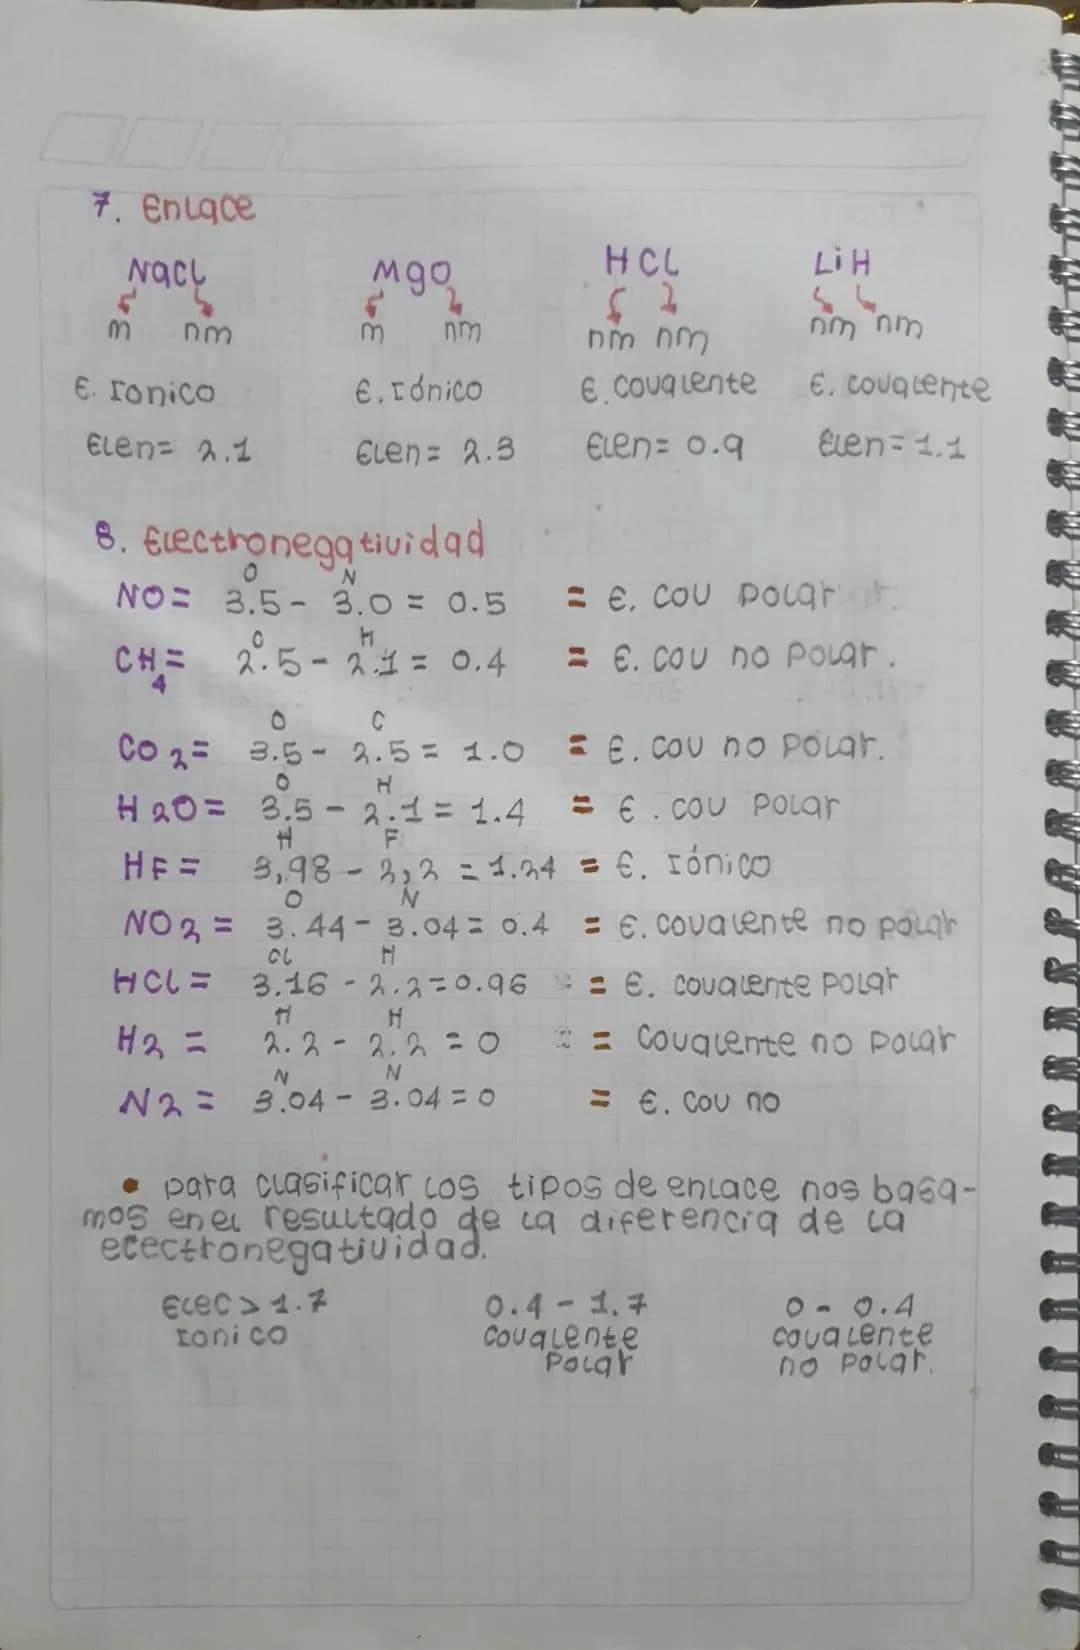 7. Enlace
NaCl MgO HCl LiH
m nm m nm nm nm nm nm
E. Ionico E. Iónico E. covalente E. covalente
Elen= 2.1 Elen= 2.3 Elen= 0.9 Elen= 1.1
8. Electronegatividad
O N
NO= 3.5 - 3.0 = 0.5 = E. cov polar
C H
CH4= 2.5 - 2.1 = 0.4 = E. cov no polar.
O C
CO2= 3.5 - 2.5 = 1.0 = E. cov no polar.
O H
H2O= 3.5 - 2.1 = 1.4 = E. cov polar
H F
HF= 3,98 - 2,2 = 1.24 = E. Iónico
O N
NO2= 3.44 - 3.04 = 0.4 = E. covalente no polar
Cl H
HCl= 3.16 - 2.2 = 0.96 = E. covalente polar
H H
H2= 2.2 - 2.2 = 0 = Covalente no polar
N N
N2= 3.04 - 3.04 = 0 = E. cov no
• para clasificar los tipos de enlace nos basa-
mos en el resultado de la diferencia de la
ecectronegatividad.
Elec > 1.7 0.4 - 1.7 0 - 0.4
Ionico covalente covalente
Polar no polar.